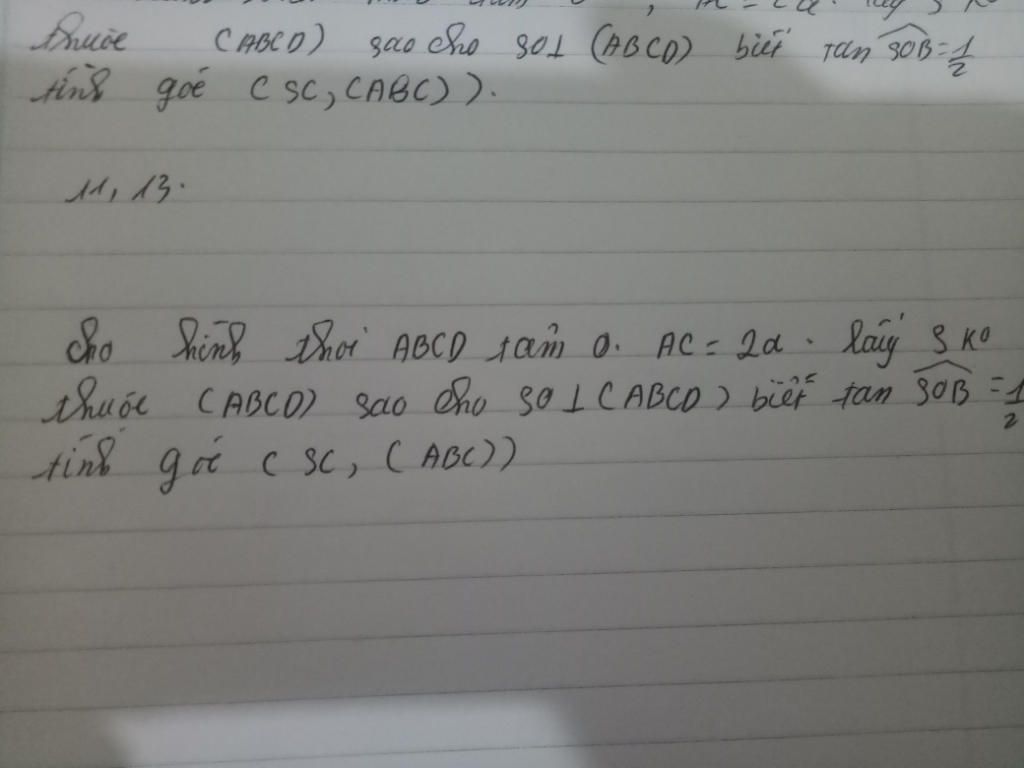 , AC = 2a. lấy S Ko
thuộc (ABCD) sao cho SO⊥ (ABCD) biết tan SOB = 1/2
tính góc (SC, (ABC)).
11, 13.
Cho hình thoi ABCD tâm O. AC = 2a. lấy S Ko
thuộc (ABCD) sao cho SO⊥(ABCD) biết tan SOB = 1/2
tính góc (SC, (ABC))